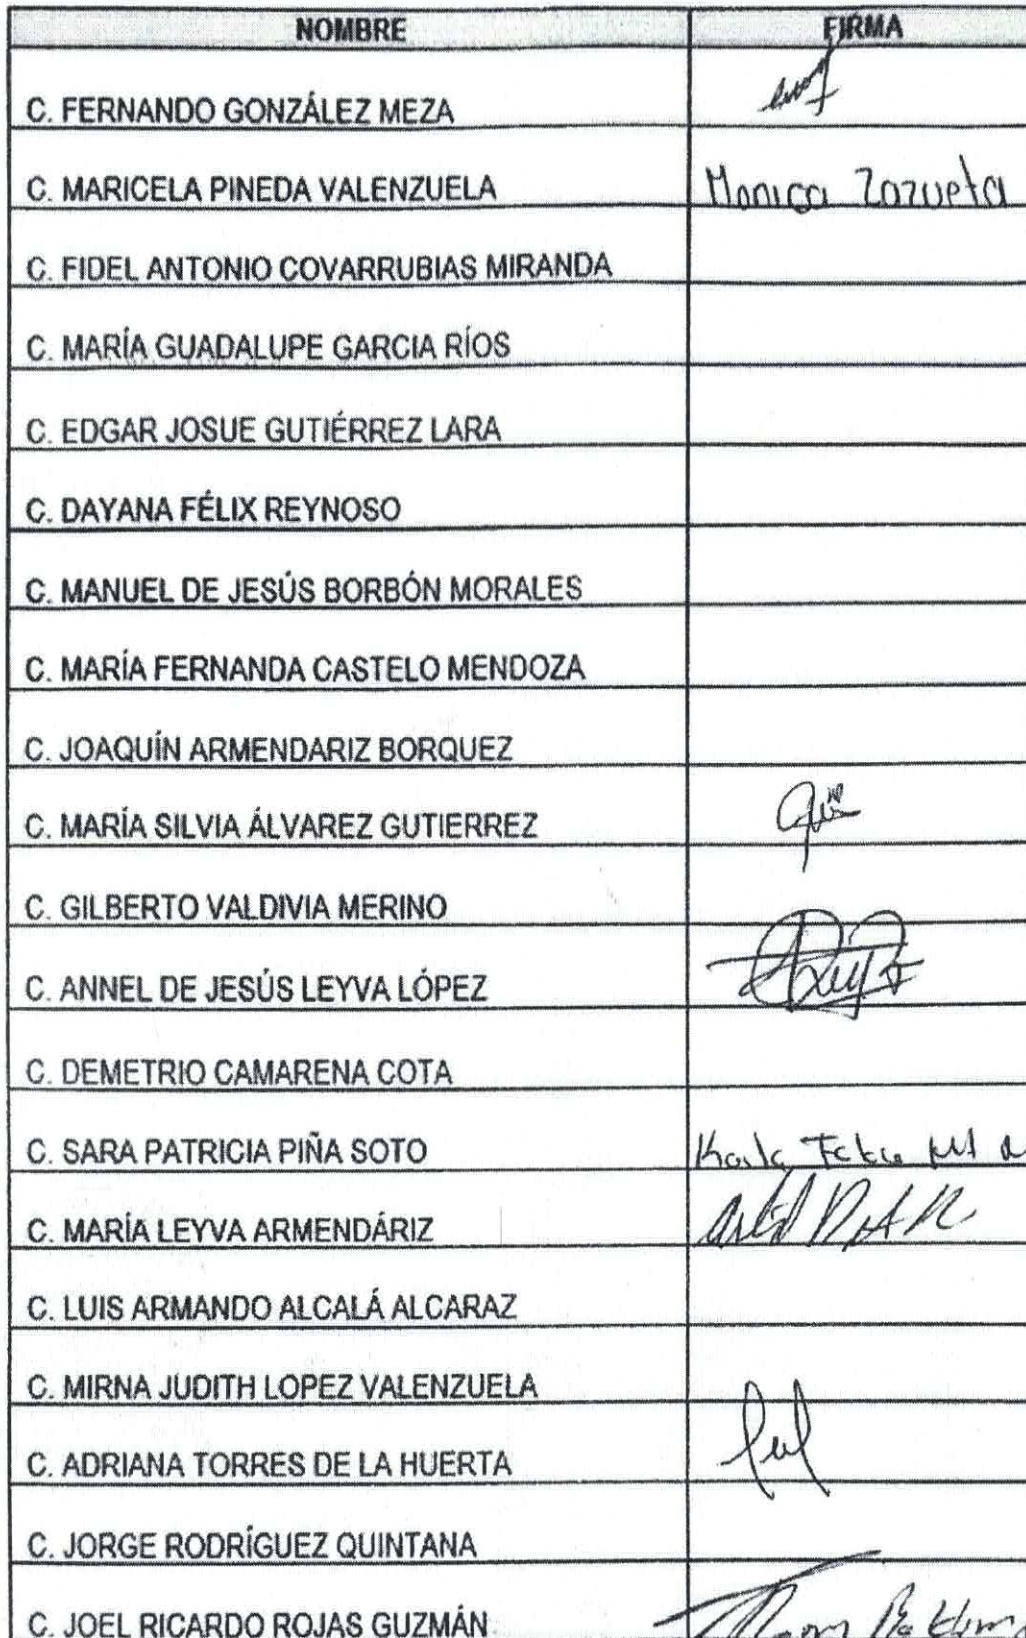 NOMBRE FIRMA
C. FERNANDO GONZÁLEZ MEZA
C. MARICELA PINEDA VALENZUELA Monica Zazueta
C. FIDEL ANTONIO COVARRUBIAS MIRANDA
C. MARÍA GUADALUPE GARCIA RÍOS
C. EDGAR JOSUE GUTIÉRREZ LARA
C. DAYANA FÉLIX REYNOSO
C. MANUEL DE JESÚS BORBÓN MORALES
C. MARÍA FERNANDA CASTELO MENDOZA
C. JOAQUÍN ARMENDARIZ BORQUEZ
C. MARÍA SILVIA ÁLVAREZ GUTIERREZ
C. GILBERTO VALDIVIA MERINO
C. ANNEL DE JESÚS LEYVA LÓPEZ
C. DEMETRIO CAMARENA COTA
C. SARA PATRICIA PIÑA SOTO Karla
C. MARÍA LEYVA ARMENDÁRIZ
C. LUIS ARMANDO ALCALÁ ALCARAZ
C. MIRNA JUDITH LOPEZ VALENZUELA
C. ADRIANA TORRES DE LA HUERTA
C. JORGE RODRÍGUEZ QUINTANA
C. JOEL RICARDO ROJAS GUZMÁN